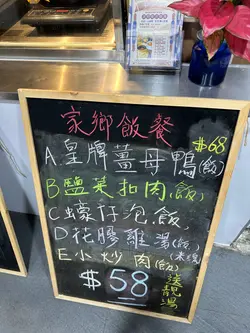 家鄉飯餐
$68
A.皇牌薑母鴨(飯)
B鹽菜扣肉(飯)
C蠔仔泡飯
D花膠雞湯(飯)(米線)
E小炒肉(飯)
$58
送靚湯